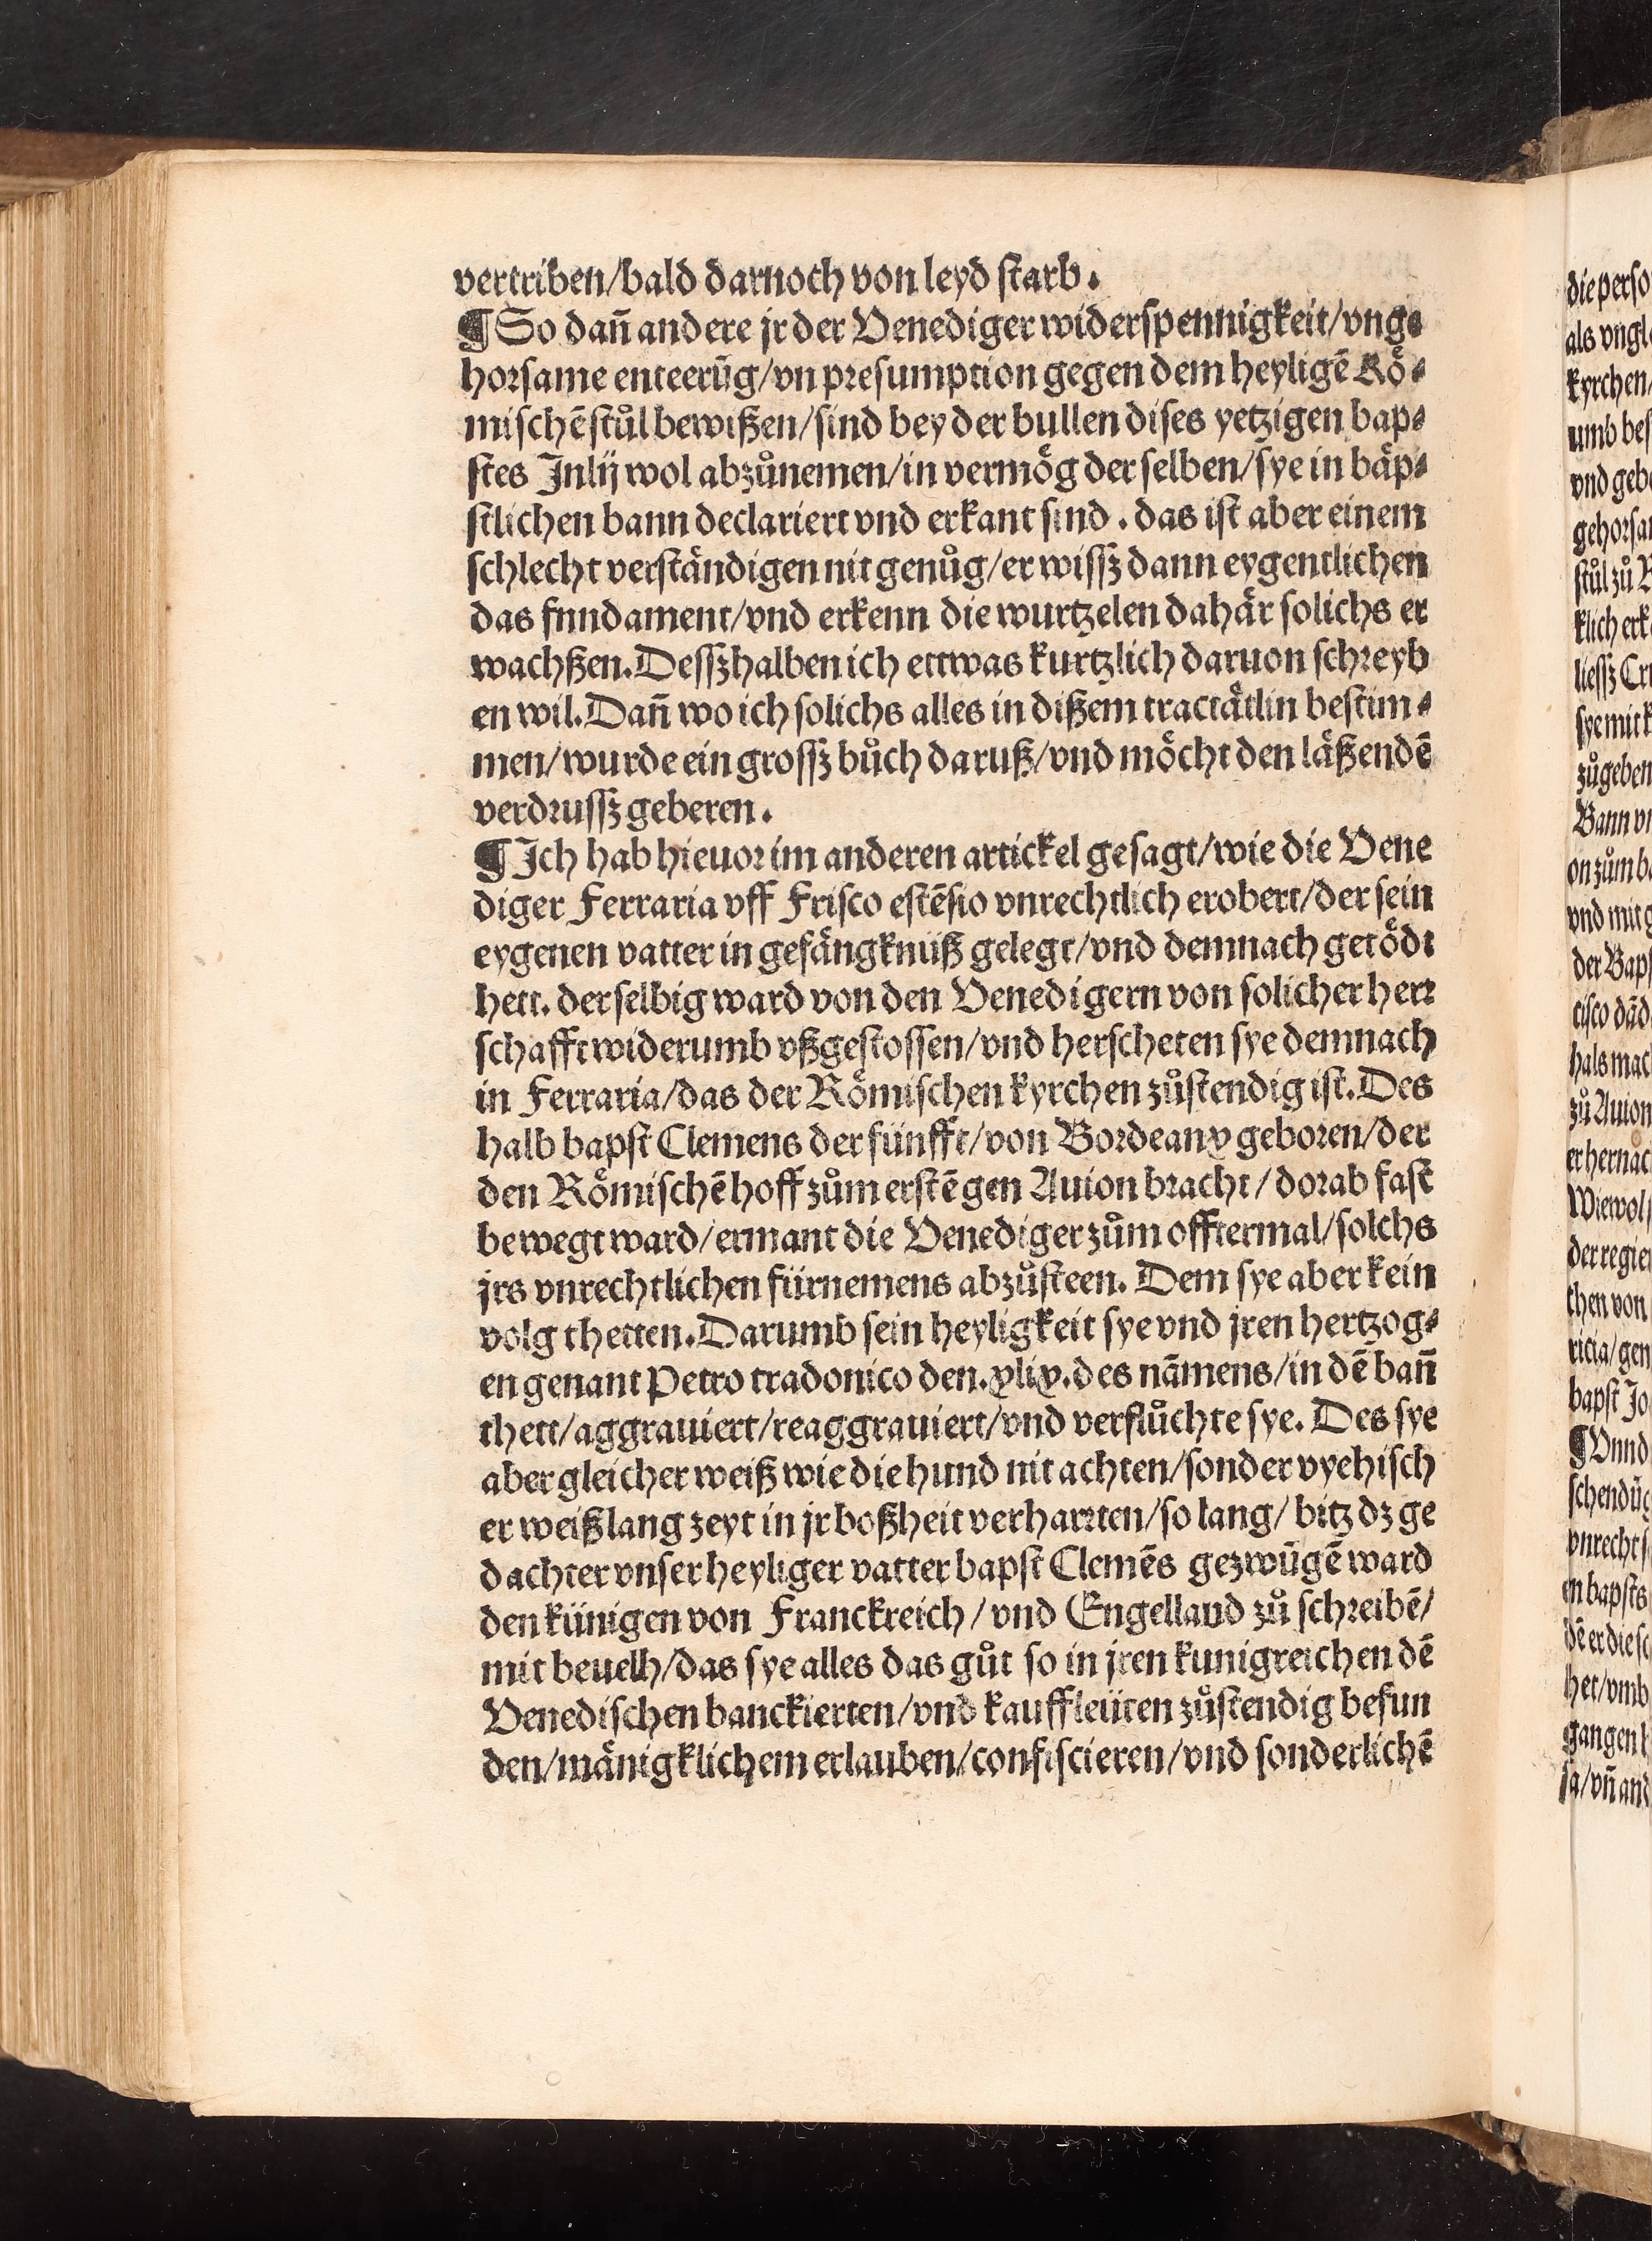 vertriben/bald darnoch von leyd ſtarb.
¶So dañ andere jr der Venediger widerſpennigkeit/vnge⸗
horſame enteerūg/vn preſumption gegen dem heyligē Roͤ⸗
miſchē ſtůl bewißen/ſind bey der bullen diſes yetzigen bap⸗
ſtes Jnlij wol abzůnemen/in vermoͤg der ſelben/ſye in baͤp⸗
ſtlichen bann declariert vnd erkant ſind. das iſt aber einem
ſchlecht verſtaͤndigen nit genůg/er wiſſz dann eygentlichen
das fnndament/vnd erkenn die wurtzelen dahaͤr ſolichs er
wachßen. Deſſzhalben ich ettwas kurtzlich daruon ſchreyb
en wil. Dañ wo ich ſolichs alles in dißem tractaͤtlin beſtim⸗
men/wurde ein groſſz bůch daruß/vnd moͤcht den laͤßendē
verdruſſz geberen.
¶Jch hab hieuor im anderen artickel geſagt/wie die Vene
diger Ferraria vff Friſco eſtēſio vnrechtlich erobert/der ſein
eygenen vatter in gefaͤngknüß gelegt/vnd demnach getoͤdt
hett. der ſelbig ward von den Venedigern von ſolicher herr
ſchafft widerumb vßgeſtoſſen/vnd herſcheten ſye demnach
in Ferraria/das der Roͤmiſchen kyrchen zůſtendig iſt. Des
halb bapſt Clemens der fünfft/von Bordeanx geboren/der
den Roͤmiſchē hoff zům erſtē gen Auion bracht/dorab faſt
bewegt ward/ermant die Venediger zům offtermal/ſolchs
jrs vnrechtlichen fürnemens abzůſteen. Dem ſye aber kein
volg thetten. Darumb ſein heyligkeit ſye vnd jren hertzog⸗
en genant Petro tradonico den. xlix. des nāmens/in dē bañ
thett/aggrauiert/reaggrauiert/vnd verflůchte ſye. Des ſye
aber gleicher weiß wie die hund nit achten/ſonder vyehiſch
er weiß lang zeyt in jr boßheit verharrten/ſo lang/bitz dz ge
dachter vnſer heyliger vatter bapſt Clemēs gezwūgē ward
den künigen von Franckreich/vnd Engellaud zů ſchreibē/
mit beuelh/das ſye alles das gůt ſo in jren kunigreichen dē
Venediſchen banckierten/vnd kauffleüten zůſtendig befun
den/maͤnigklichem erlauben/confiſcieren/vnd ſonderlichē
die perſo
als vngl
kyrchen/
umb beſ
vnd geb
gehorſa
ſtůl zů R
klich erk
lieſſz Cr
ſye mit k
zůgeben
Bann v
on zům b
vnd mit g
der Bapſ
ciſco dā d
hals mac
zů Auion
er hernac
Wiewol
der regie
then von
ricia/gen
bapſt Jo
¶Vnnd
ſchendūg
vnrecht ſ
en bapſts
dē er die ſc
het/vmb
gangen
ſa/vñ and